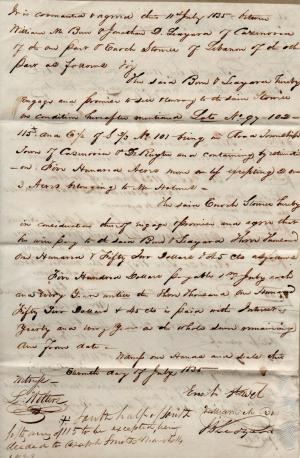 It is covenanted & agreed this 11th July 1835 between
William M. Burr & Jonathan D. Ledyard of Cazenovia
of the one part & Enoch Stowel of Lebanon of the other
part as follows Viz
The said Burr & Ledyard hereby
engage and promise to sell & convey to the said Stowel
on condition hereafter mentioned Lots No 97 102
115 and E/ of S/ No 101 being in Road Township
Towns of Cazenovia & DeRuyter and containing by
on Five Hundred Acres more or less excepting 2 and
2 Acres belonging to Mr Holmes
The said Enoch Stowel hereby
in consideration thereof engages promises and agrees that
he will pay to the said Burr & Ledyard Three Thousand
One Hundred & Fifty Two Dollars & 45 Cts as follows
Five Hundred Dollars payable 1st July each
and every Year until the Three Thousand One Hundred
Fifty Two Dollars & 45 cts is paid with Interest
Yearly and every Year on the whole sum remaining
due from date
Witness our Hands and Seals this
Eleventh day of July 1835
Witness
Enoch Stowel
William M. Burr
South half of South
fifty acres of 115 to be excepted being
deeded to